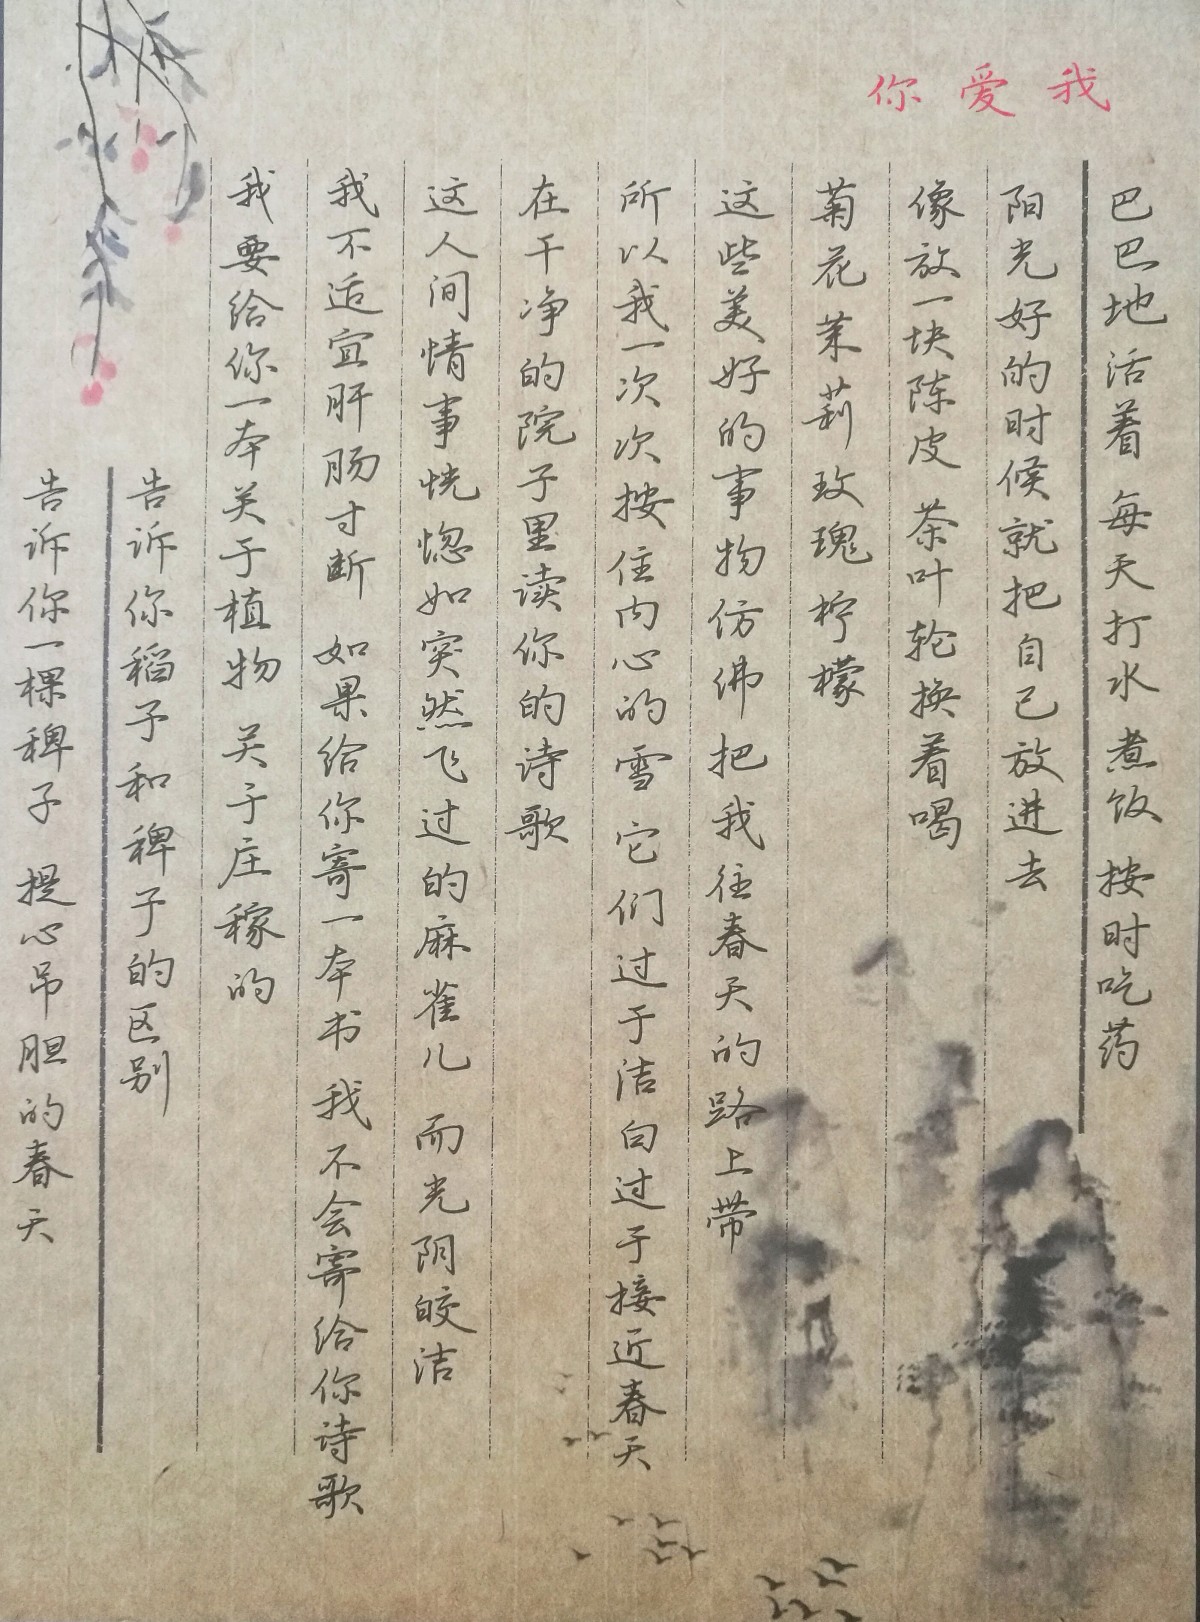 我爱你
巴巴地活着 每天打水 煮饭 按时吃药
阳光好的时候就把自己放进去
像放一块陈皮 茶叶轮换着喝
菊花 茉莉 玫瑰 柠檬
这些美好的事物仿佛把我往春天的路上带
所以我一次次按住内心的雪 它们过于洁白过于接近春天
在干净的院子里读你的诗歌
这人间情事恍惚如突然飞过的麻雀儿 而光阴皎洁
我不适宜肝肠寸断 如果给你寄一本书 我不会寄给你诗歌
我要给你一本关于植物 关于庄稼的
告诉你稻子和稗子的区别
告诉你一棵稗子 提心吊胆的春天